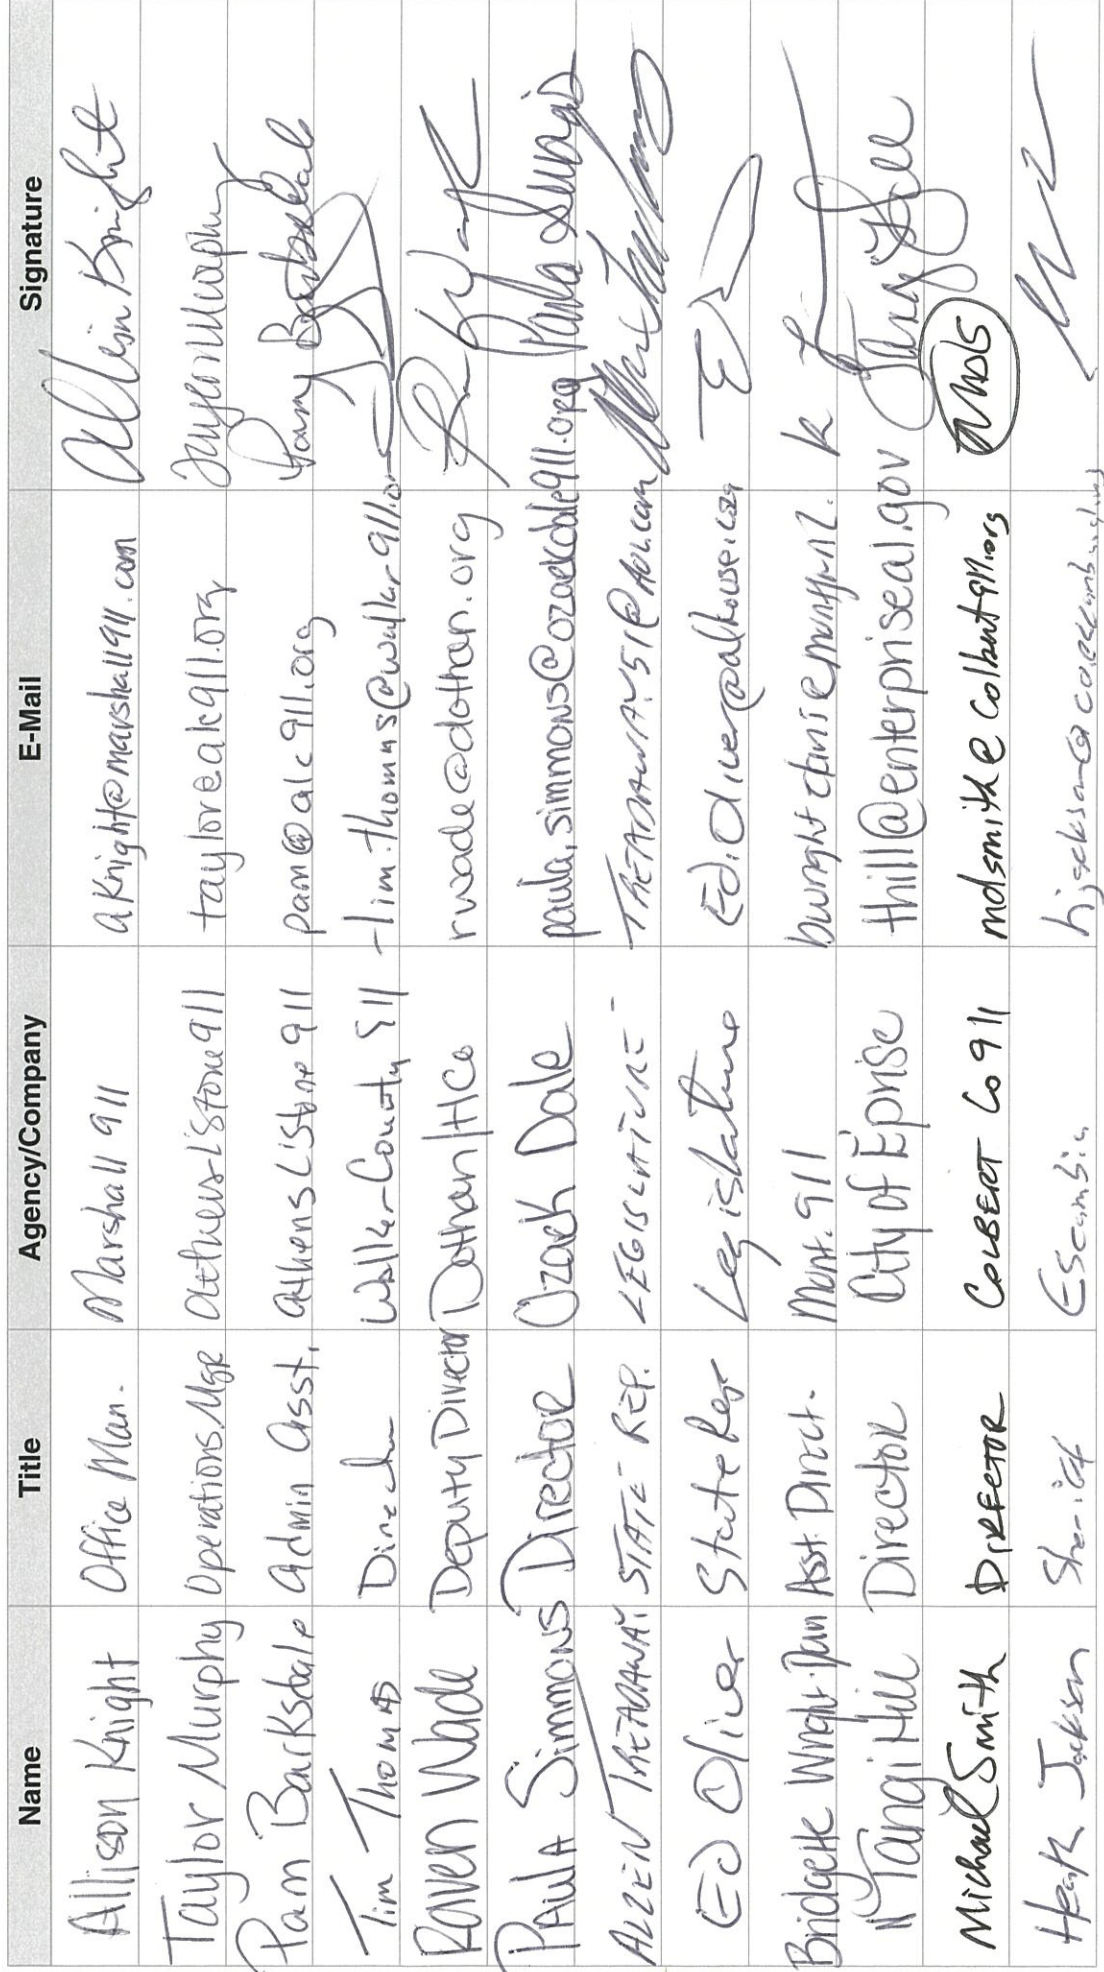 Name Title Agency/Company E-Mail Signature
Allison Knight Office Man. Marshall 911 aknight@marshall911.com Allison Knight
Taylor Murphy Operations Mgr Athens Limestone 911 taylor@alc911.org Taylor Murphy
Pam Barksdale Admin Asst. Athens Listone 911 pam@alc911.org Pam Barksdale
Tim Thomas Director Walker County 911 tim.thomas@walker911.or
Raven Wade Deputy Director Dothan/HCo rwade@dothan.org
Paula Simmons Director Ozark Dale paula.simmons@ozarkdale911.org Paula Simmons
ALLEN TREADAWAY STATE REP. LEGISLATURE TREADAWAY51@AOL.com
Ed Oliver State Rep Legislature Ed.Oliver@alhouse
Bridgette Wright Asst. Direct. Mont. 911
Tangi Hill Director City of E'prise thill@enterpriseal.gov
Michael Smith DIRECTOR COLBERT Co 911 mdsmith@colbert911.org MDS
Heath Jackson Sheriff Escambia